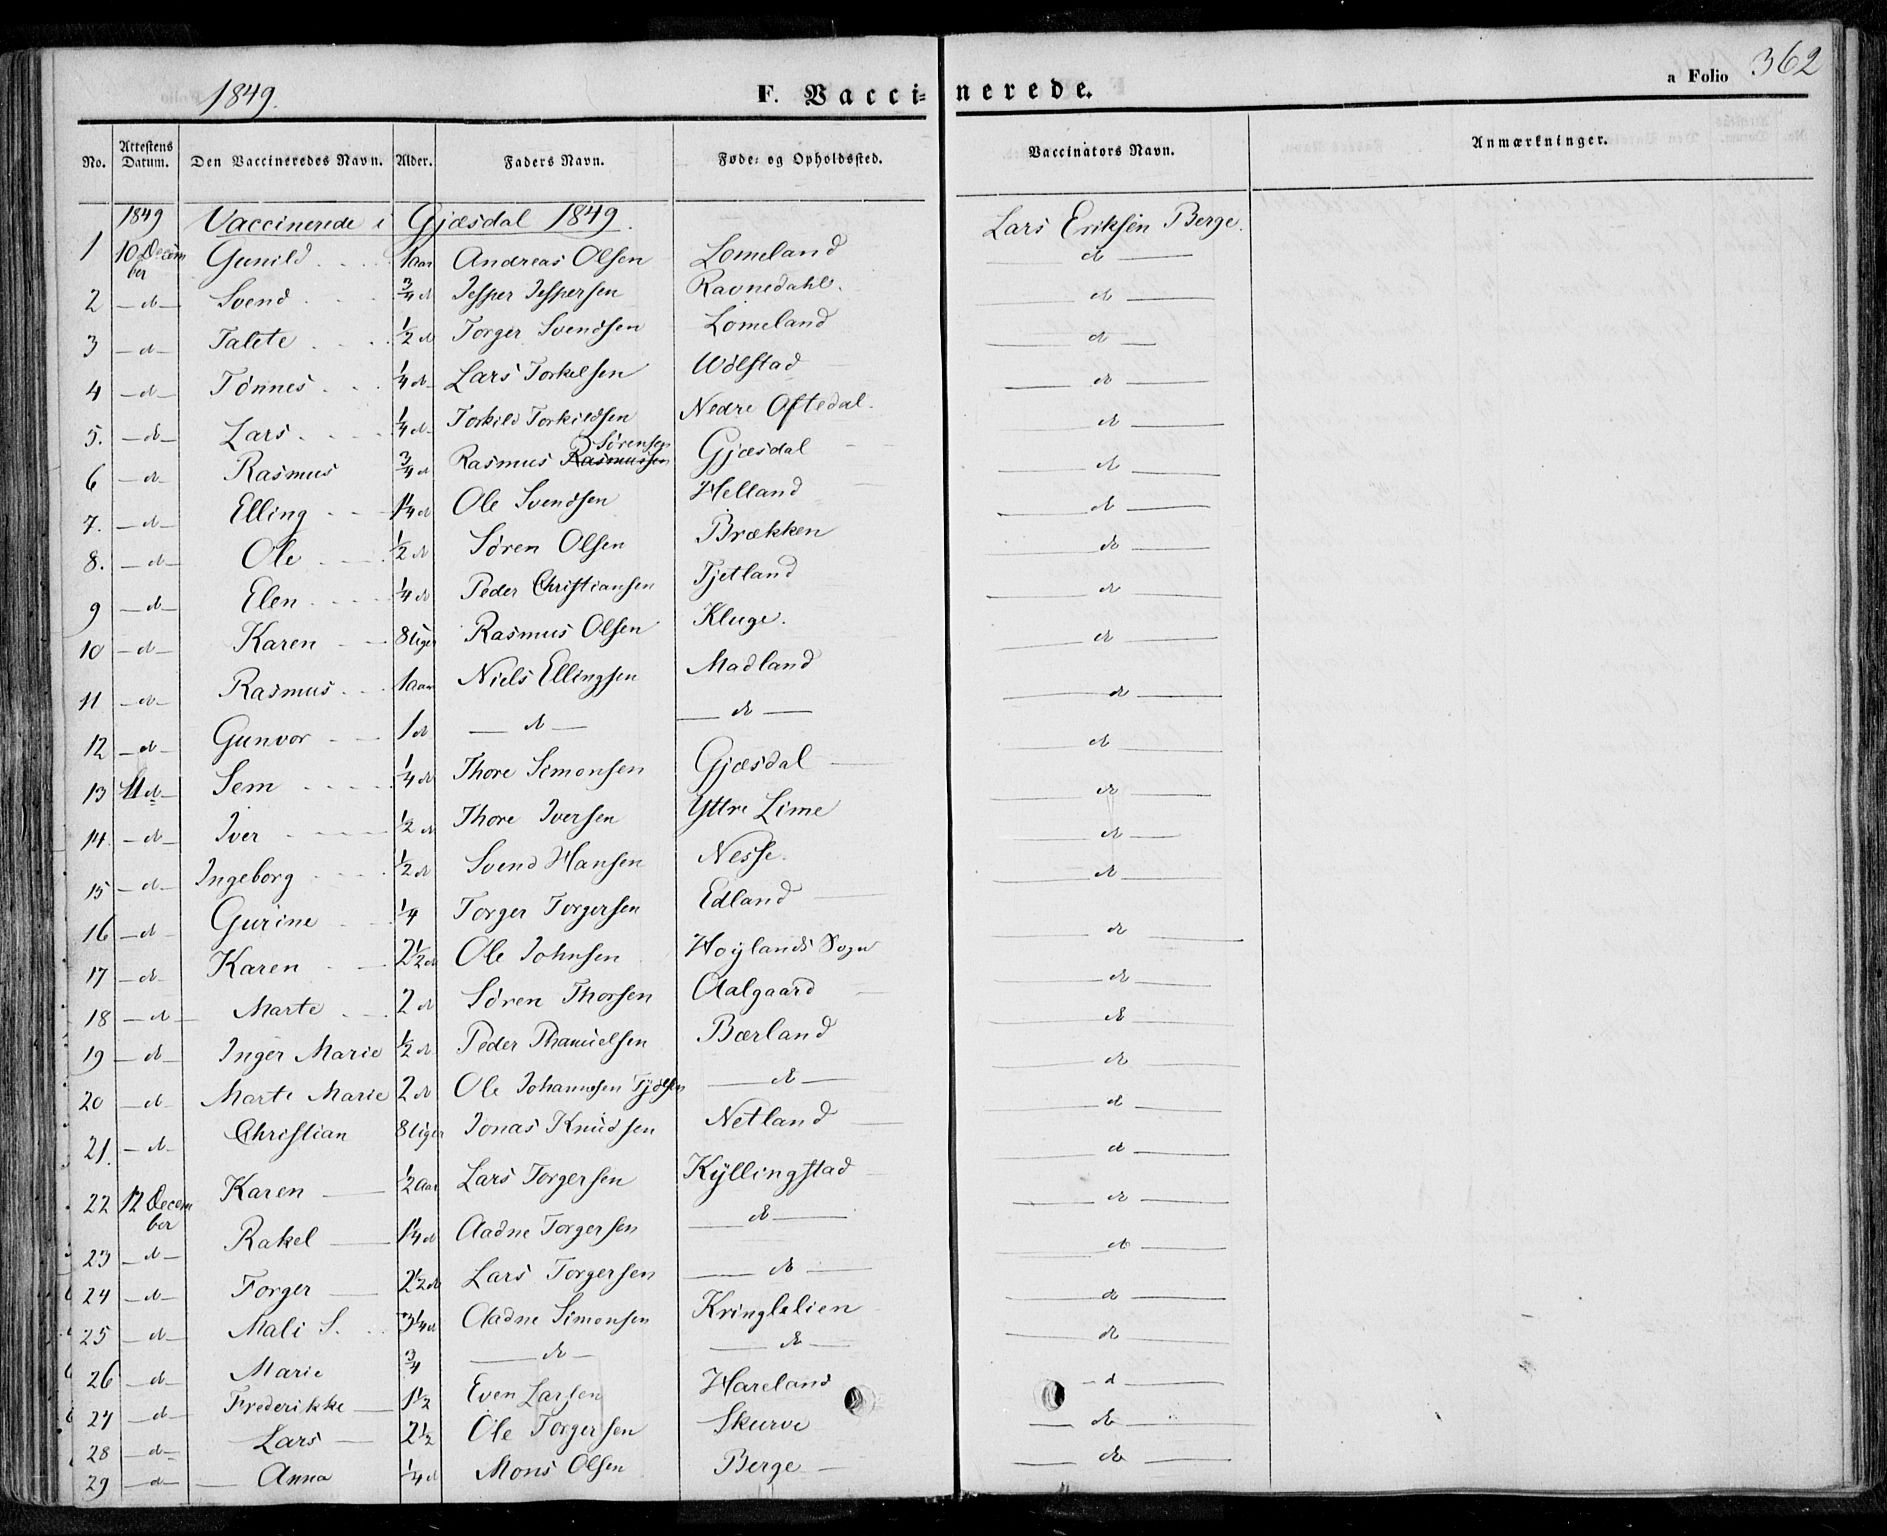 1849. F. Vacci= nerede. a Folio 362
No. Attestens Datum. Den Vaccineredes Navn. Alder. Faders Navn. Føde- og Opholdssted. Vaccinators Navn. Anmærkninger.
1849 Vaccinerede i Gjæsdal 1849. Lars Eriksen Berge.
1 10 December Gunild 1 aar Andreas Olsen Lomeland d
2 d Svend 3/4 d Jesper Jespersen Ravnedahl. d
3 d Talete 1/2 d Torger Svendsen Lomeland d
4 d Tønnes 1/4 d Lars Torkelsen Wølstad d
5. d Lars 1/4 d Torkild Torkildsen Nedre Oftedal. d
6 d Rasmus 3/4 d Rasmus Rasmussen Sørensen Gjæsdal d
7. d Elling 1 1/4 d Ole Svendsen Helland d
8. d Ole 1/2 d Søren Olsen Brækken d
9 d Elen 1/4 d Peder Christiansen Tjetland d
10 d Karen 8 Uger Rasmus Olsen Kluge. d
11 d Rasmus 1 aar Niels Ellingsen Madland d
12 d Gunvor 1 d d d d
13 11 d Sem 1/4 d Thore Simonsen Gjæsdal d
14. d Iver 1/2 d Thore Iversen Yttre Lime d
15 d Ingeborg 1/2 d Svend Hansen Nesse. d
16 d Gurine 1/4 Torger Torgersen Edland d
17 d Karen 2 1/2 d Ole Johnsen Hoylands Sogn d
18 d Marte 2 d Søren Thorsen Aalgaard d
19 d Inger Marie 1/2 d Peder Thamielsen Bærland d
20 d Marte Marie 2 d Ole Johannesen d d
21. d Christian 8 Uger Jonas Knudsen Netland d
22 12 December Karen 1/2 Aar Lars Torgersen Kyllingstad d
23 d Rakel 1 1/4 d Aadne Torgersen d d
24 d Torger 2 1/2 d Lars Torgersen d d
25 d Mali S. 3 1/4 d Aadne Simonsen Kringlelien d
26 d Marie 3/4 d d d
27 d Frederikke 1 1/2 Even Larsen Hareland d
28 d Lars 2 1/2 Ole Torgersen Skurve d
29 d Anna 1/4 d Mons Olsen Berge